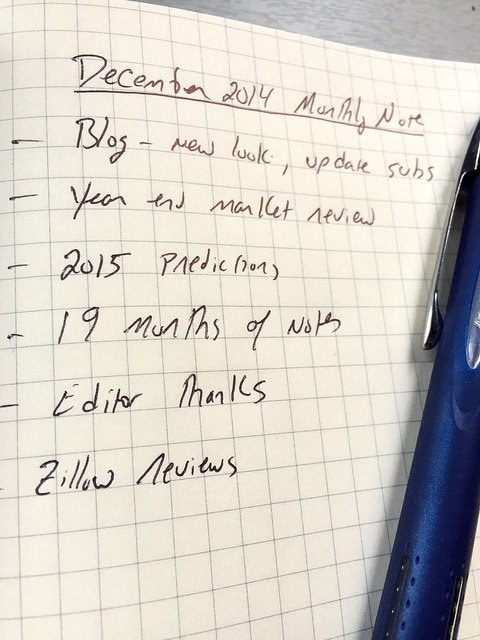 December 2014 Monthly Note
- Blog - new look, update subs
- Year end market review
- 2015 Predictions
- 19 months of notes
- Editor Thanks
- Zillow reviews